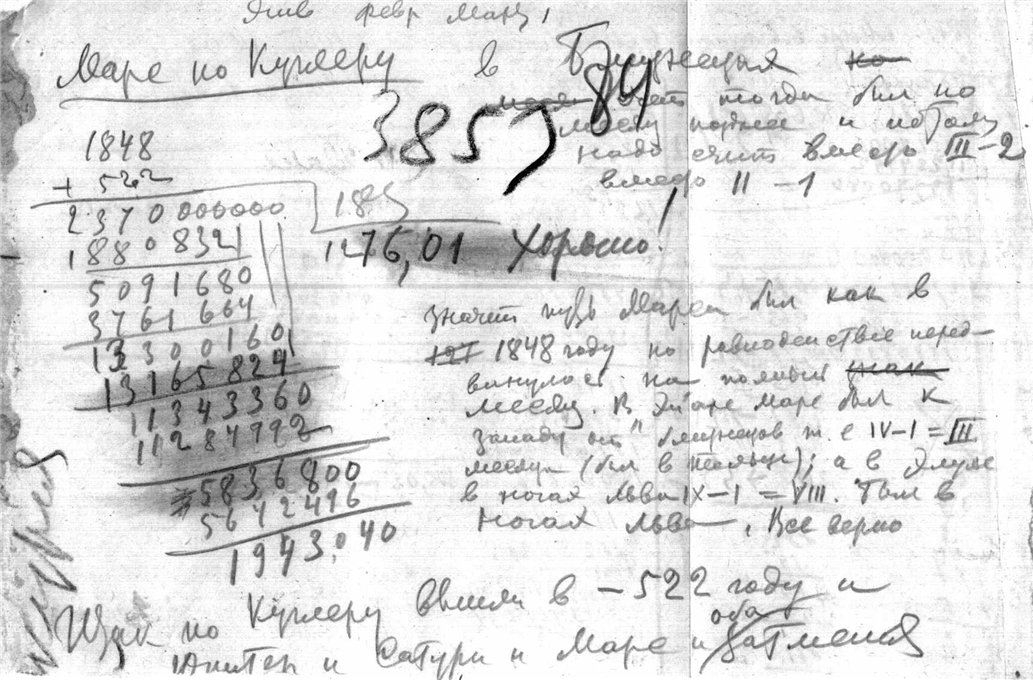 Янв февр Март,
Марс по Кугл​еру в Близнецах
тогда был по
3855 84
1848 месяц позднее и потому
+ 522 надо счит вместо III-2
вместо II - 1
2370000000 185
18808321 1276,01 Хорошо!
5091680
3761664
13300160
13165824
11343360
11284992
5836800
5642496
1943040
значит путь Марса был как в
1848 году но равноденствие перед-
винулось на полный
месяц. В Марс был к
западу от Близнецов т. е IV-I = III
месяца (был в тельце); а в Элуле
в ногах льва IX-I = VIII. Там в
ногах льва. Все верно
Итак по Куглеру вышли в -522 году и
Юпитер и Сатурн и Марс и оба затмения